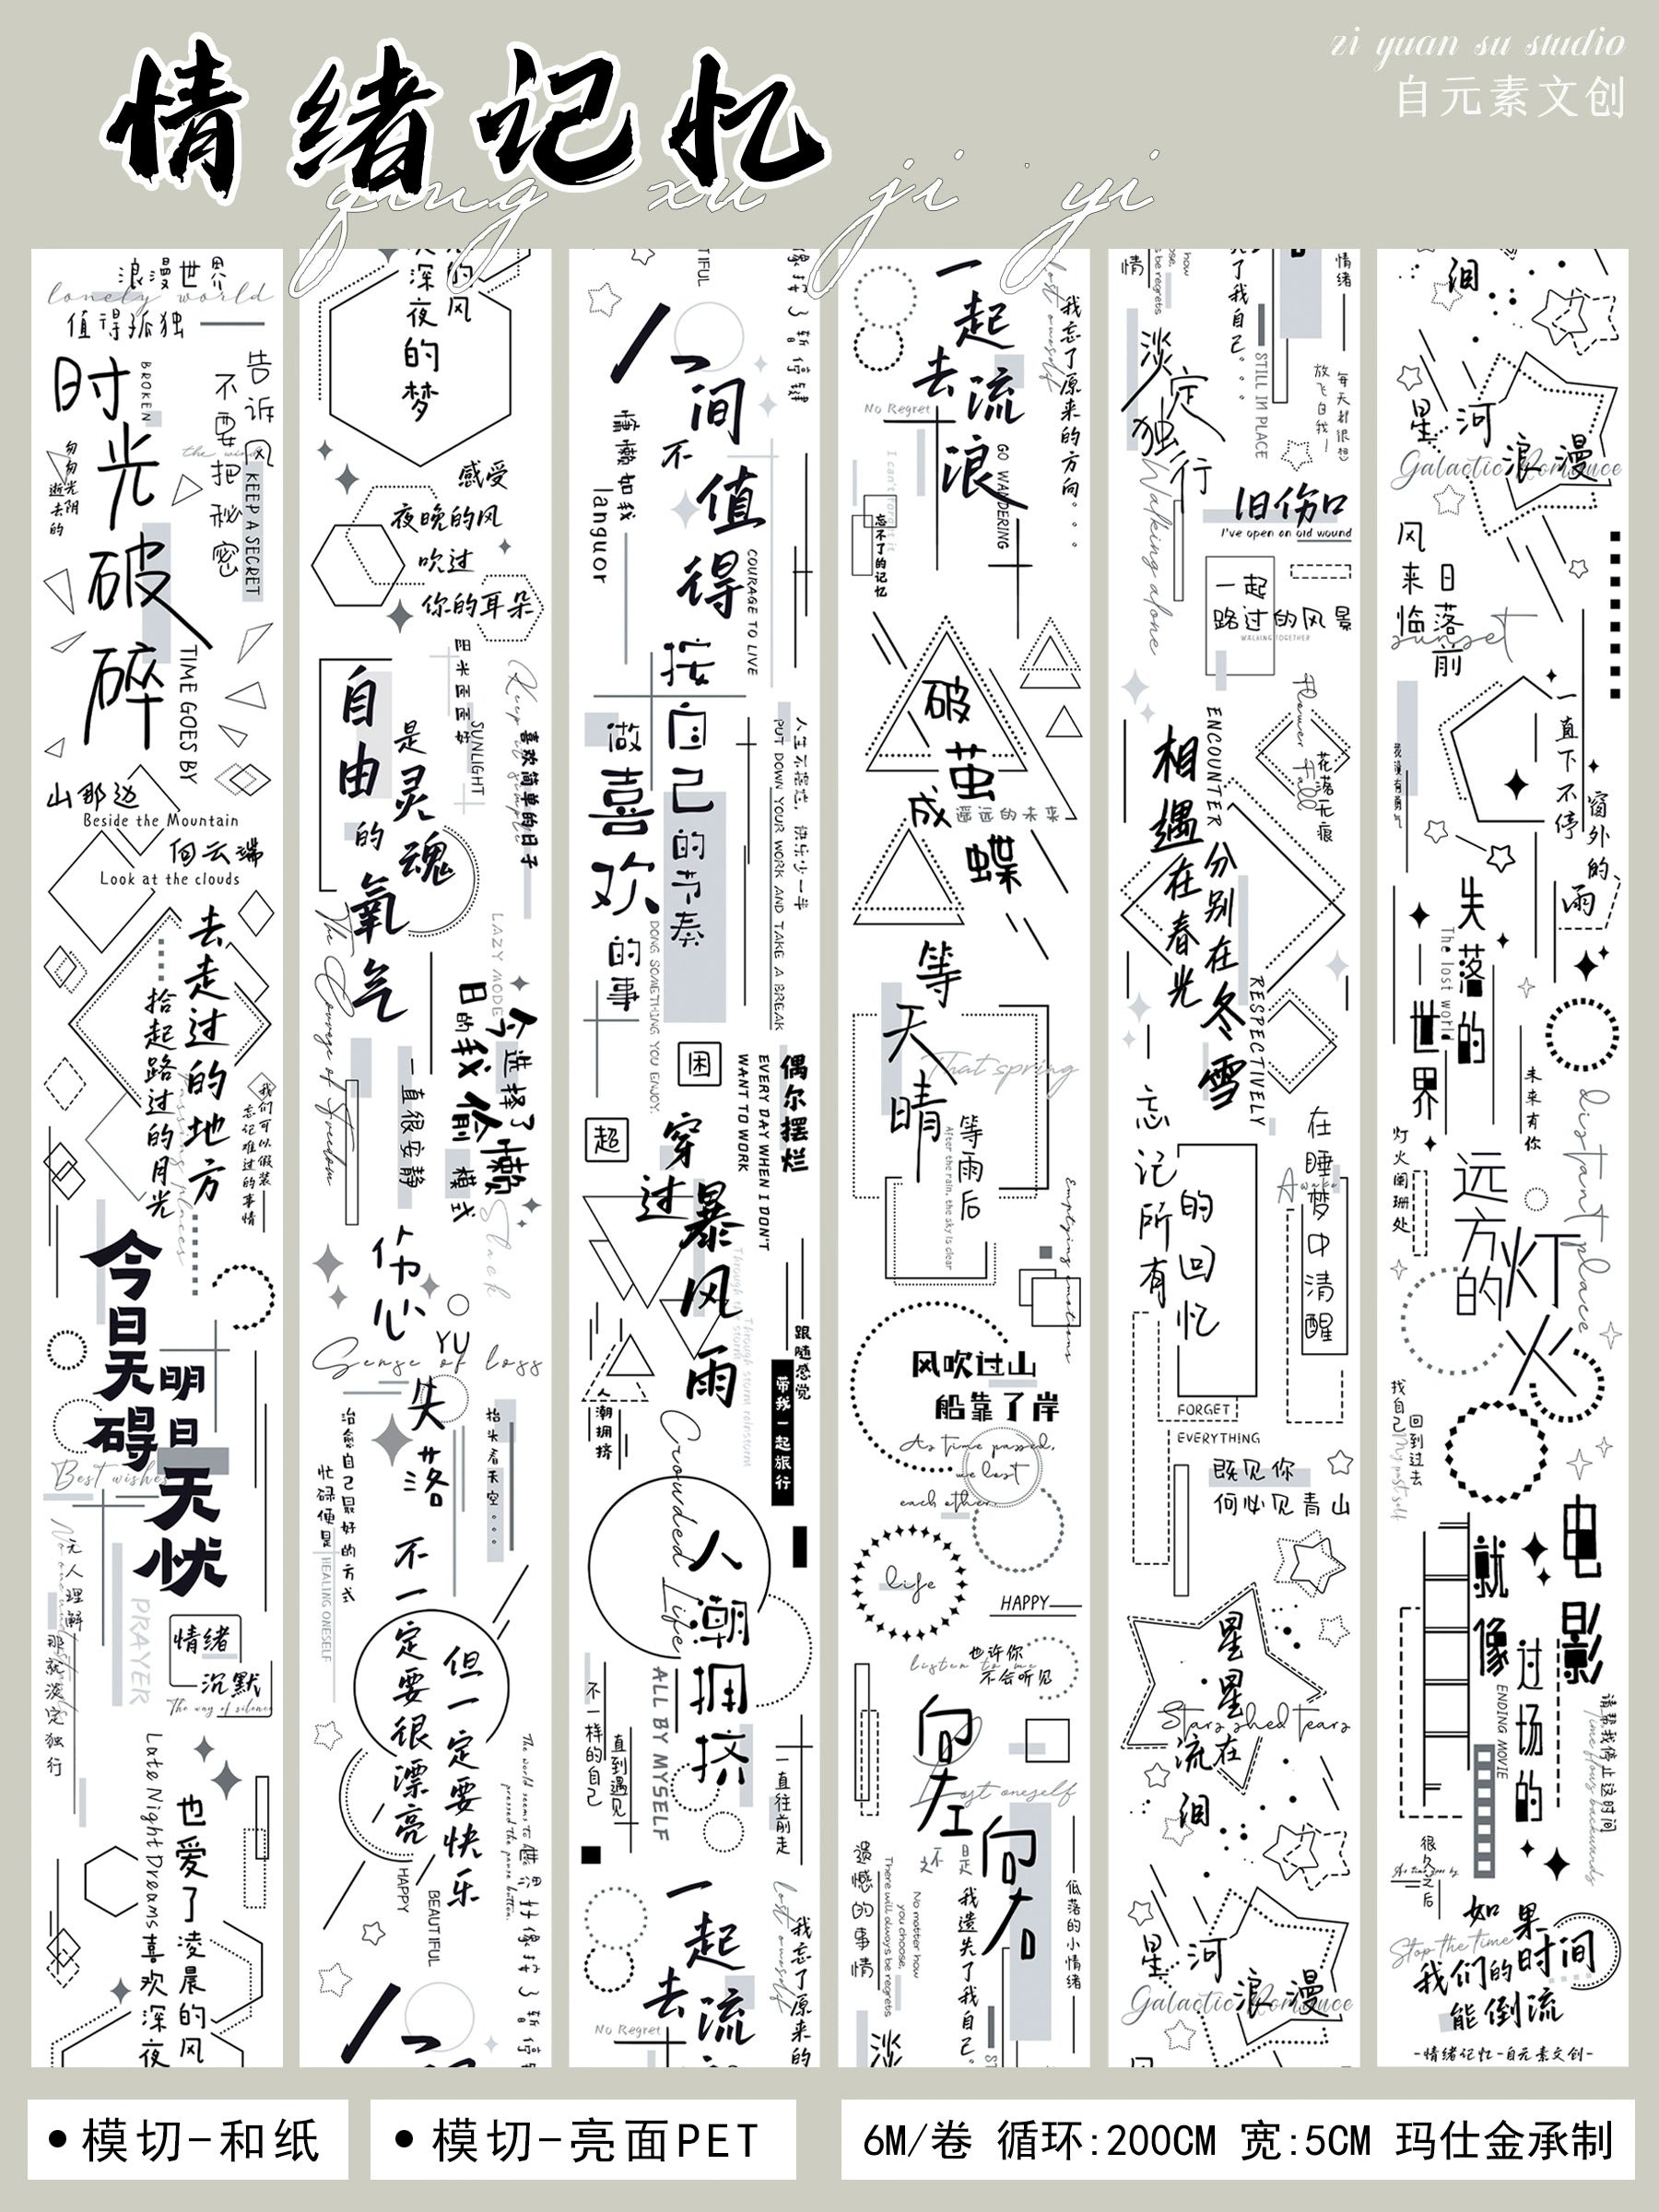 情绪记忆
qing xu ji yi
zi yuan su studio
自元素文创
浪漫世界
lonely world
值得孤独
时光破碎
BROKEN
告诉风
不要把秘密
the wind
KEEP A SECRET
匆匆光阴
逝去的
TIME GOES BY
山那边
Beside the Mountain
向云端
Look at the clouds
去走过的地方
拾起路过的月光
我们可以假装
忘记难过的事情
今日天碍
明日天忧
Best wishes
无人理解
那就淡定独行
PRAYER
情绪
沉默
The way of silence
Late Night Dreams
也爱了凌晨的风
喜欢深夜
的风
深夜的梦
感受
夜晚的风
吹过
你的耳朵
自由的氧气
是灵魂
SUNLIGHT
喜欢简单的日子
The Courage of Freedom
LAZY MODE
今日的我
选择了偷懒模式
一直很安静
Slack
伤心
YU
Sense of loss
失落
抬头看天空。。。
治愈自己最好的方式
忙碌便是
HEALING ONESELF
不一定要很漂亮
但一定要快乐
HAPPY
BEAUTIFUL
The world seems to have
pressed the pause button.
世界好像按了暂停键
人间不值得
TIFUL
像按了暂停键
慵懒如我
languor
COURAGE TO LIVE
按自己的节奏
做喜欢的事
DOING SOMETHING YOU ENJOY.
人生不慌忙，快乐少一半
PUT DOWN YOUR WORK AND TAKE A BREAK
困
超
偶尔摆烂
EVERY DAY WHEN I DON'T
WANT TO WORK
穿过暴风雨
跟随感觉
带我一起旅行
潮拥挤
Crowded Life
人潮拥挤
ALL BY MYSELF
不一样的自己
直到遇见
一直往前走
一起去流
No Regret
lost oneself
我忘了原来的
一起去流浪
lost oneself
我忘了原来的方向。。。
No Regret
GO WANDERING
I can't forget it
忘不了的记忆
破茧成蝶
遥远的未来
等天晴
That spring
等雨后
After the rain, the sky is clear
Emptying emotions
风吹过山
船靠了岸
As time passed,
we lost
each other.
life
HAPPY
也许你
不会听见
listen to me
向左
Lost oneself
向右
还是
我遗失了我自己。
遗憾的事情
There will always be regrets
No matter how
you choose,
低落的小情绪
淡
how
be regrets
情
了我自己。。。
情绪
STILL IN PLACE
淡定独行
Walking alone
每天都很想
放飞自我！
旧伤口
I've open an old wound
一起
路过的风景
WALKING TOGETHER
Flower Fall
花落无痕
ENCOUNTER
相遇在春光
分别在冬雪
RESPECTIVELY
忘记所有的回忆
在睡梦中清醒
Awake
FORGET
EVERYTHING
既见你
何必见青山
星星在流泪
Stars shed tears
星河浪漫
Galactic Romance
泪
星河浪漫
Galactic Romance
风来临
日落前
sunset
一直下不停
窗外的雨
失落的世界
The lost world
未来有你
灯火阑珊处
distant place
远方的灯火
找自己
回到过去
My past self
电影
就像过场的
ENDING MOVIE
请帮我停止这时间
Time flows backwards
很久之后
As time goes by
如果时间
Stop the time
我们的
能倒流
-情绪记忆-自元素文创-
•模切-和纸
•模切-亮面PET
6M/卷 循环:200CM 宽:5CM 玛仕金承制